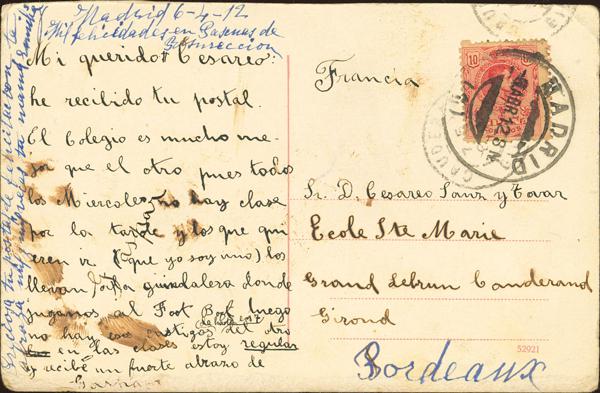 Madrid 6-4-12
Mil felicidades en Pascuas de
Resurrección
Mi querido Cesareo:
he recibido tu postal.
El Colegio es mucho me-
jor que el otro pues todos
los Miercoles no hay clase
por la tarde y los que qui-
eren ir (que yo soy uno) los
llevan a la guindalera donde
jugamos al Foot Bol luego
no hay castigos del otro
en las clases estoy regular
y recibe un fuerte abrazo de
Francia
10
MADRID
ABR 12 8M
CAUDERAN
Sr. D. Cesareo Sanz y Tovar
Ecole Ste Marie
Grand Lebrun Couderand
Girond
Bordeaux
52921